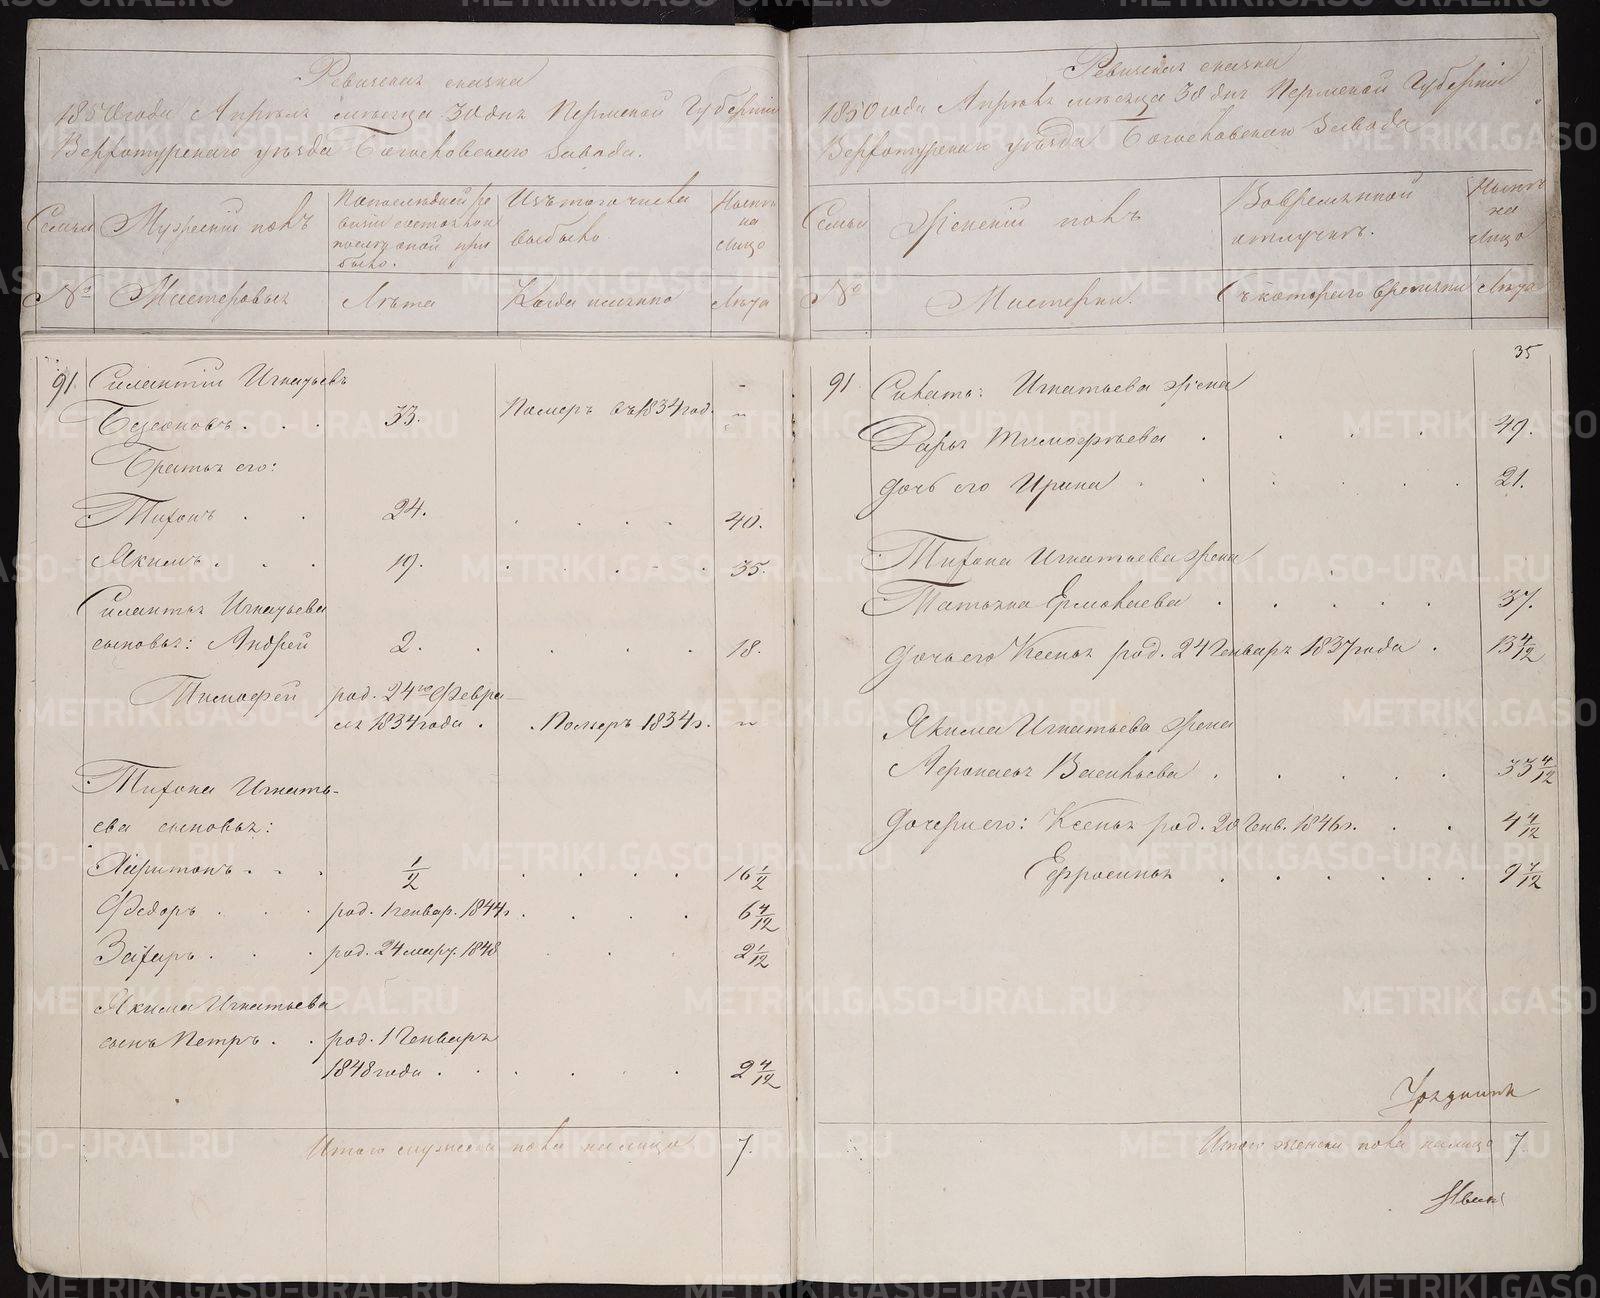 Ревизская сказка
1850 года Апреля месяца 30 дня Пермской Губернии
Верхотурского уезда Богословского завода.
Семьи
Мужеский полъ
По последней ре
визии состояло и
после оной при
было.
Изъ того числа
выбыло
Ныне
на
лицо
№
Мастеровыхъ
Лѣта
Когда именно
Лѣта
91.
Силантiй Игнатьевъ
33.
Померъ въ 1834 год.
Братья его:
Тихонъ
24.
40.
Якимъ
19.
35.
Силантья Игнатьева
сыновья: Андрей
2.
18.
Тимофей
род. 24го Февра
ля 1834 года
Померъ 1834 г.
Тихона Игнать-
ева сыновья:
Харитонъ
1/2
16 1/2
Федоръ
род. 1 генвар. 1844 г.
6 4/12
Захаръ
род. 24 март. 1848
2 1/12
Якима Игнатьева
сынъ Петръ
род. 1 Генваря
1848 года
2 4/12
Итого мужеска пола на лицо
7.
Ревизская сказка
1850 года Апреля месяца 30 дня Пермской Губернии
Верхотурского уезда Богословского завода
Семьи
Женскiй полъ
Во временной
отлучке.
Ныне
на
лицо
№
Мастерки.
Съ которого времени
Лѣта
35
91
Игнатьева жена
Дарья Тимофеева
49.
Дочь его Ирина
21.
Тихона Игнатьева жена
Татьяна Ермолаева
37.
Дочь его Ксенья род. 24 Генваря 1837 года
13 4/12
Якима Игнатьева жена
Васильева
33 4/12
Дочери его: Ксенья род. 20 Генв. 1846 г.
4 4/12
Ефросинья
9 4/12
Итого женска пола на лицо
7.